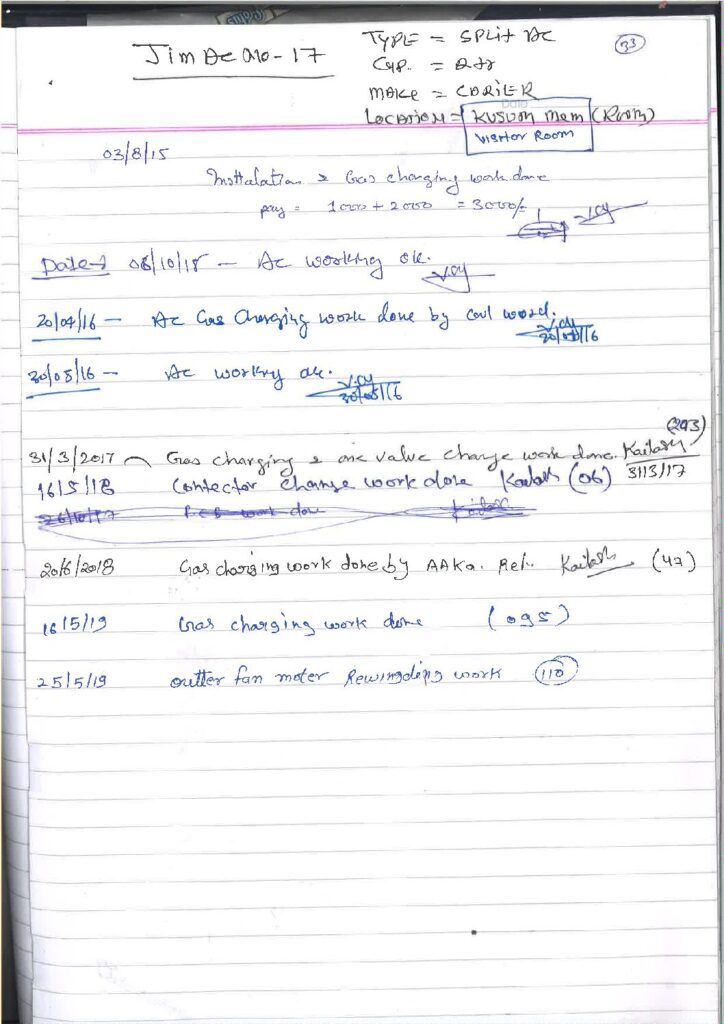 Jim Ac No-17
TYPE = SPLit AC
33
Cap. = 2 Tr
MAKE = CARiER
LOCATION = KUSUM Mam (Room)
Visitor Room
03/8/15
Insttalation & Gas charging work done
pay = 1000 + 2000 = 3000/-
Date → 08/10/15 - Ac working ok.
20/04/16 - Ac Gas Charging work done by cool world.
20/04/16
30/05/16 - Ac working ok.
30/05/16
(293)
31/3/2017 Gas charging & one valve change work done. Kailash
31/3/17
16/5/18 Contector change work done Kailash (06)
20/6/2018 Gas charging work done by AAKa. Ref. Kailash (47)
16/5/19 Gas charging work done (095)
25/5/19 outter fan moter Rewingding work 110